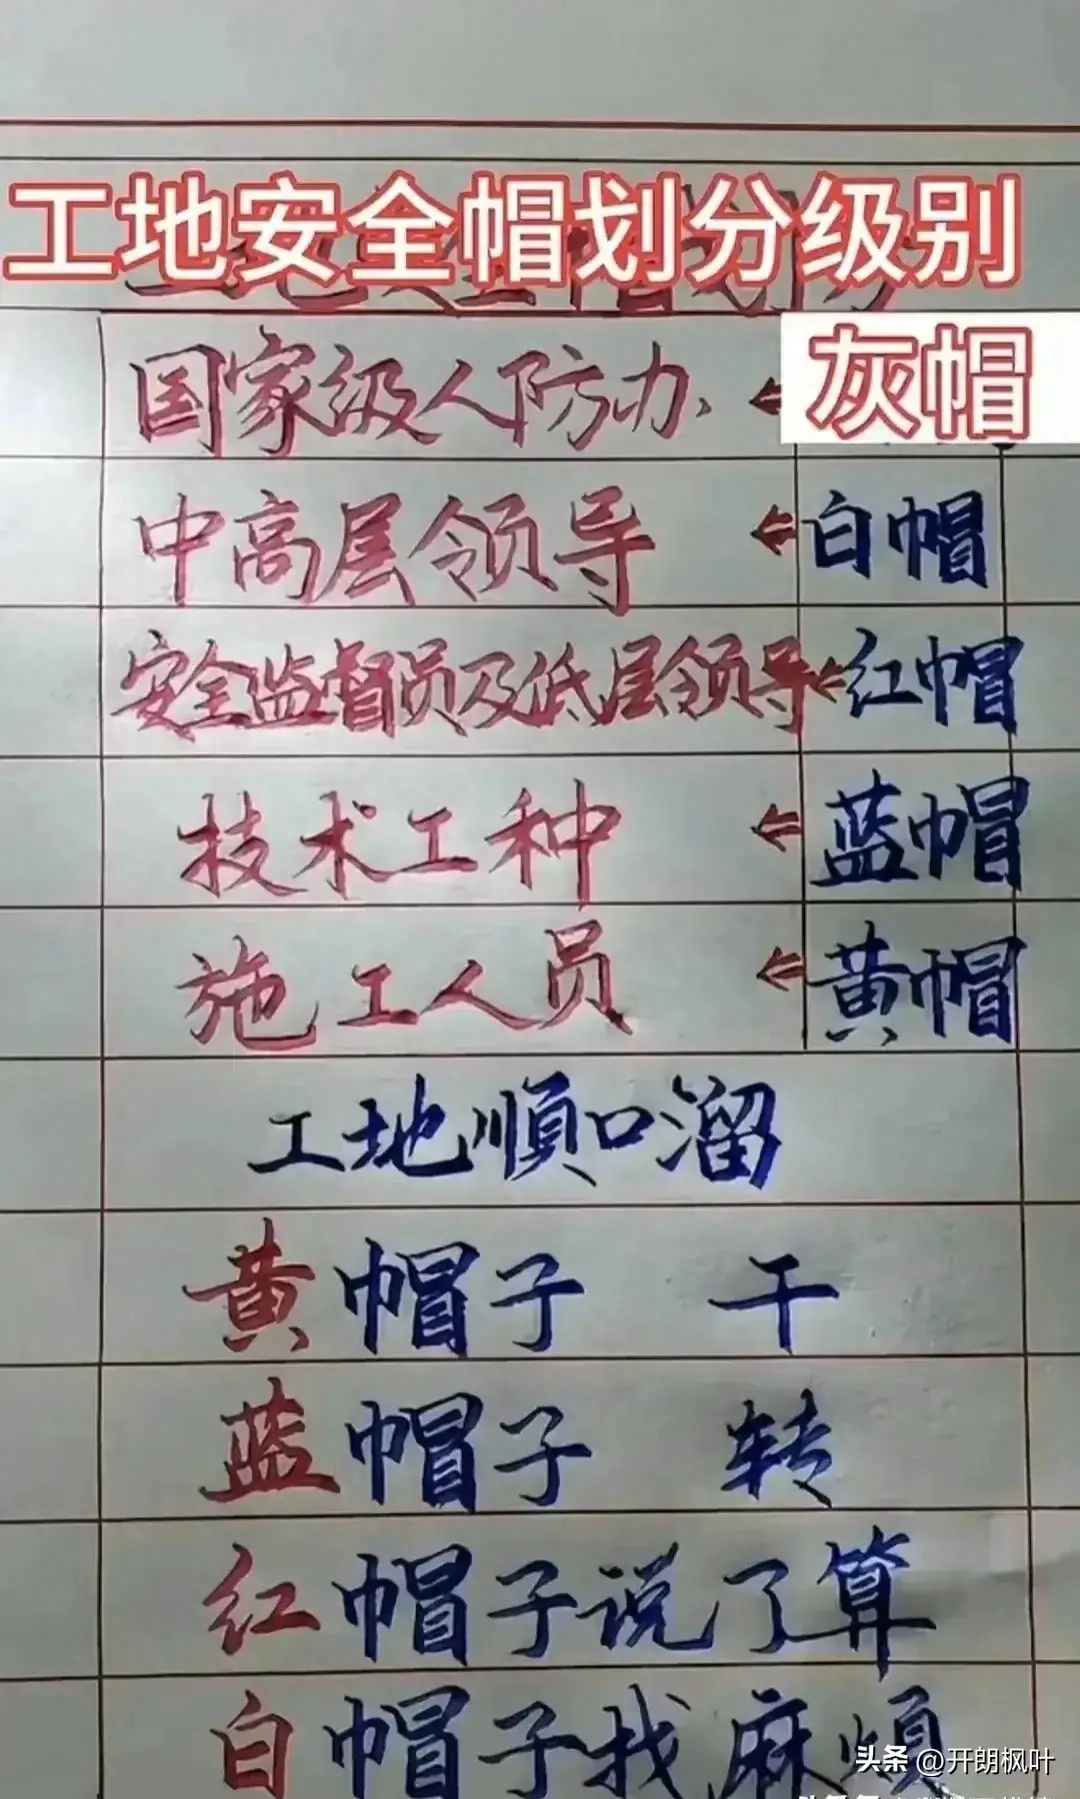 工地安全帽划分级别
国家级人防办 ← 灰帽
中高层领导 ← 白帽
安全监督员及低层领导 ← 红帽
技术工种 ← 蓝帽
施工人员 ← 黄帽
工地顺口溜
黄帽子 干
蓝帽子 转
红帽子说了算
白帽子找麻烦
头条 @开朗枫叶